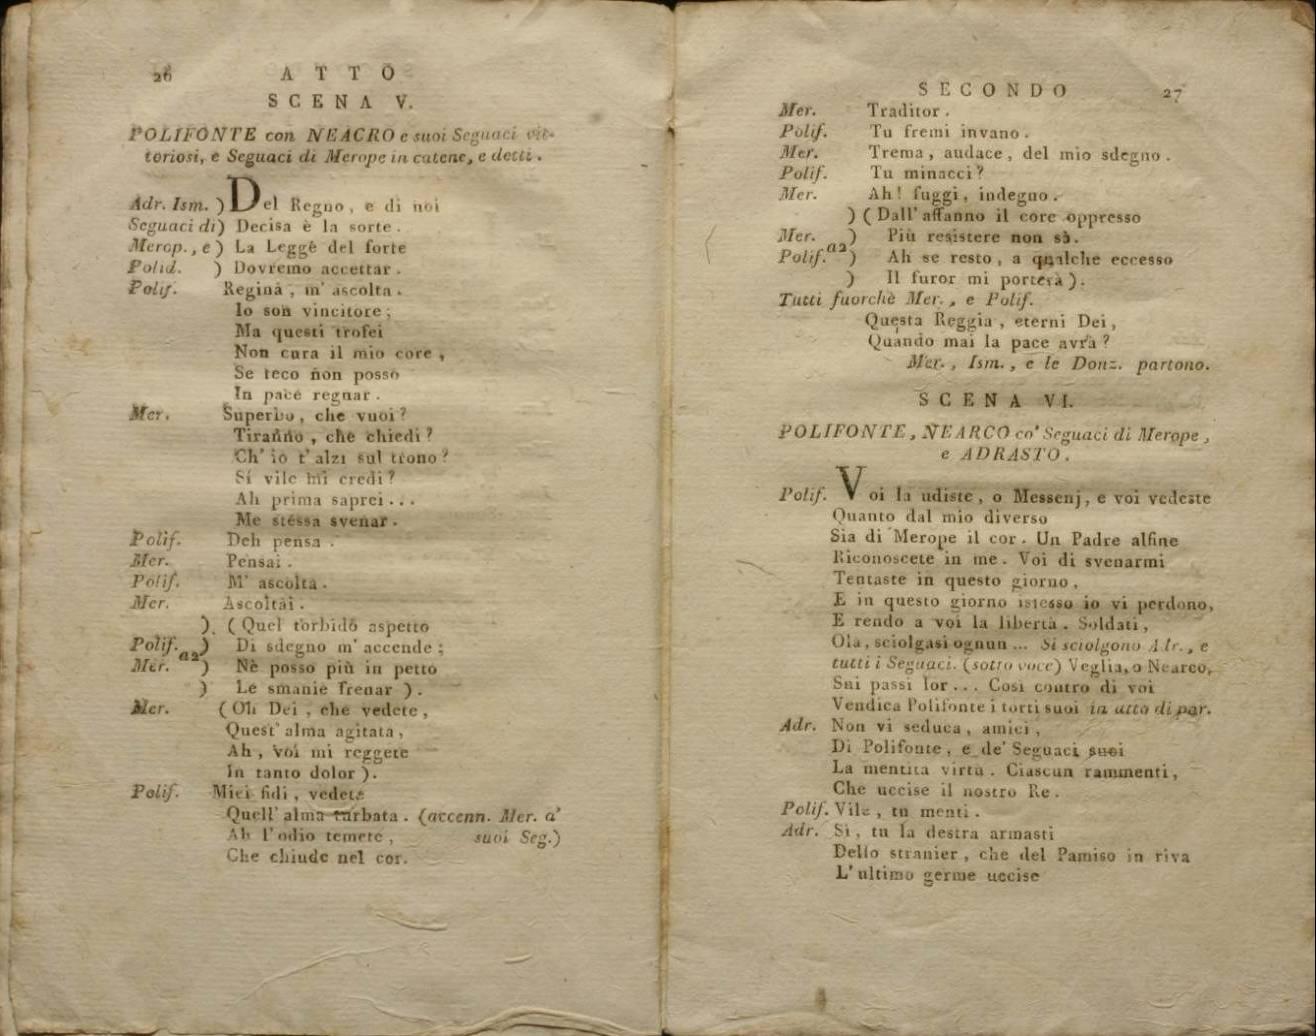 26 ATTO
SCENA V.
POLIFONTE con NEACRO e suoi Seguaci vit-
toriosi, e Seguaci di Merope in catene, e detti.
Adr. Ism. ) Del Regno, e di noi
Seguaci di ) Decisa è la sorte.
Merop., e ) La Legge del forte
Polid. ) Dovremo accettar.
Polif. Regina, m' ascolta.
Io son vincitore;
Ma questi trofei
Non cura il mio core,
Se teco non posso
In pace regnar.
Mer. Superbo, che vuoi?
Tiranno, che chiedi?
Ch' io t' alzi sul trono?
Sí vile mi credi?
Ah prima saprei...
Me stessa svenar.
Polif. Deh pensa.
Mer. Pensai.
Polif. M' ascolta.
Mer. Ascoltai.
). ( Quel torbido aspetto
Polif. ) Di sdegno m' accende;
Mer. a2 ) Nè posso più in petto
) Le smanie frenar ).
Mer. ( Oh Dei, che vedete,
Quest' alma agitata,
Ah, voi mi reggete
In tanto dolor ).
Polif. Miei fidi, vedete
Quell' alma turbata. (accenn. Mer. a'
Ah l' odio temete, suoi Seg.)
Che chiude nel cor.
SECONDO 27
Mer. Traditor.
Polif. Tu fremi invano.
Mer. Trema, audace, del mio sdegno.
Polif. Tu minacci?
Mer. Ah! fuggi, indegno.
) ( Dall' affanno il core oppresso
Mer. ) Più resistere non sà.
Polif. a2 ) Ah se resto, a qualche eccesso
) Il furor mi porterà ).
Tutti fuorchè Mer., e Polif.
Questa Reggia, eterni Dei,
Quando mai la pace avrà?
Mer., Ism., e le Donz. partono.
SCENA VI.
POLIFONTE, NEARCO co' Seguaci di Merope,
e ADRASTO.
Polif. Voi la udiste, o Messenj, e voi vedeste
Quanto dal mio diverso
Sia di Merope il cor. Un Padre alfine
Riconoscete in me. Voi di svenarmi
Tentaste in questo giorno,
E in questo giorno istesso io vi perdono,
E rendo a voi la libertà. Soldati,
Ola, sciolgasi ognun... Si sciolgono Adr., e
tutti i Seguaci. (sotto voce) Veglia, o Nearco,
Sui passi lor... Così contro di voi
Vendica Polifonte i torti suoi in atto di par.
Adr. Non vi seduca, amici,
Di Polifonte, e de' Seguaci suoi
La mentita virtù. Ciascun rammenti,
Che uccise il nostro Re.
Polif. Vile, tu menti.
Adr. Sì, tu la destra armasti
Dello stranier, che del Pamiso in riva
L' ultimo germe uccise